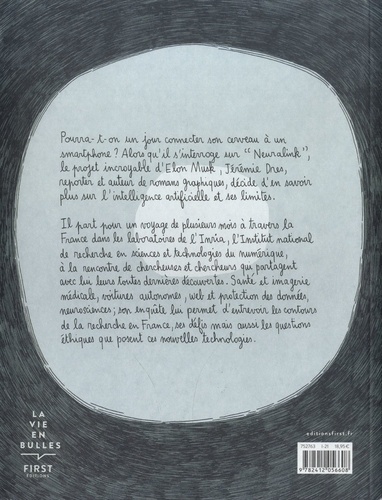 Pourra-t-on un jour connecter son cerveau à un
smartphone ? Alors qu'il s'interroge sur "Neuralink",
le projet incroyable d'Elon Musk, Jérémie Dres,
reporter et auteur de romans graphiques, décide d'en savoir
plus sur l'intelligence artificielle et ses limites.
Il part pour un voyage de plusieurs mois à travers la
France dans les laboratoires de l'Inria, l'Institut national
de recherche en sciences et technologies du numérique,
à la rencontre de chercheuses et chercheurs qui partagent
avec lui leurs toutes dernières découvertes. Santé et imagerie
médicale, voitures autonomes, web et protection des données,
neurosciences; son enquête lui permet d'entrevoir les contours
de la recherche en France, ses défis mais aussi les questions
éthiques que posent ces nouvelles technologies.
LA
VIE
EN
BULLES
FIRST
ÉDITIONS
editionsfirst.fr
18,95€
9782412056608